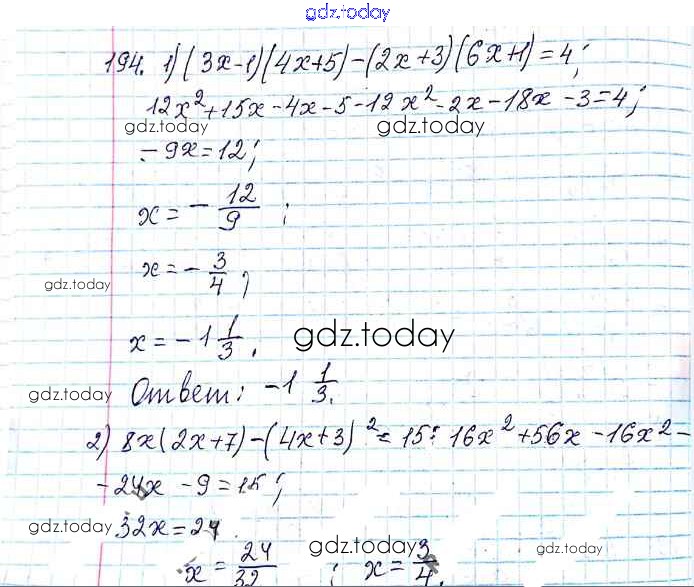 gdz.today
194. 1) (3x-1)(4x+5)-(2x+3)(6x+1)=4;
12x²+15x-4x-5-12x²-2x-18x-3=4;
gdz.today gdz.today
-9x=12;
x=-12/9;
x=-3/4;
gdz.today
x=-1 1/3. gdz.today
gdz.today Ответ: -1 1/3.
2) 8x(2x+7)-(4x+3)²=15; 16x²+56x-16x²-
-24x-9=15;
gdz.today 32x=24
x=24/32; gdz.today x=3/4. gdz.today